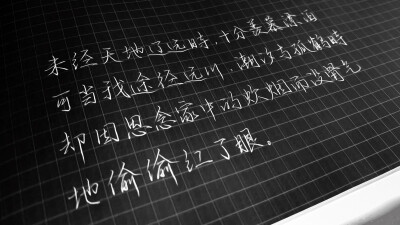 未经天地辽远时，十分羡慕漂泊
可当我途经远川、潮汐与孤鹤时
却因思念家中的炊烟而没骨气
地偷偷红了眼。